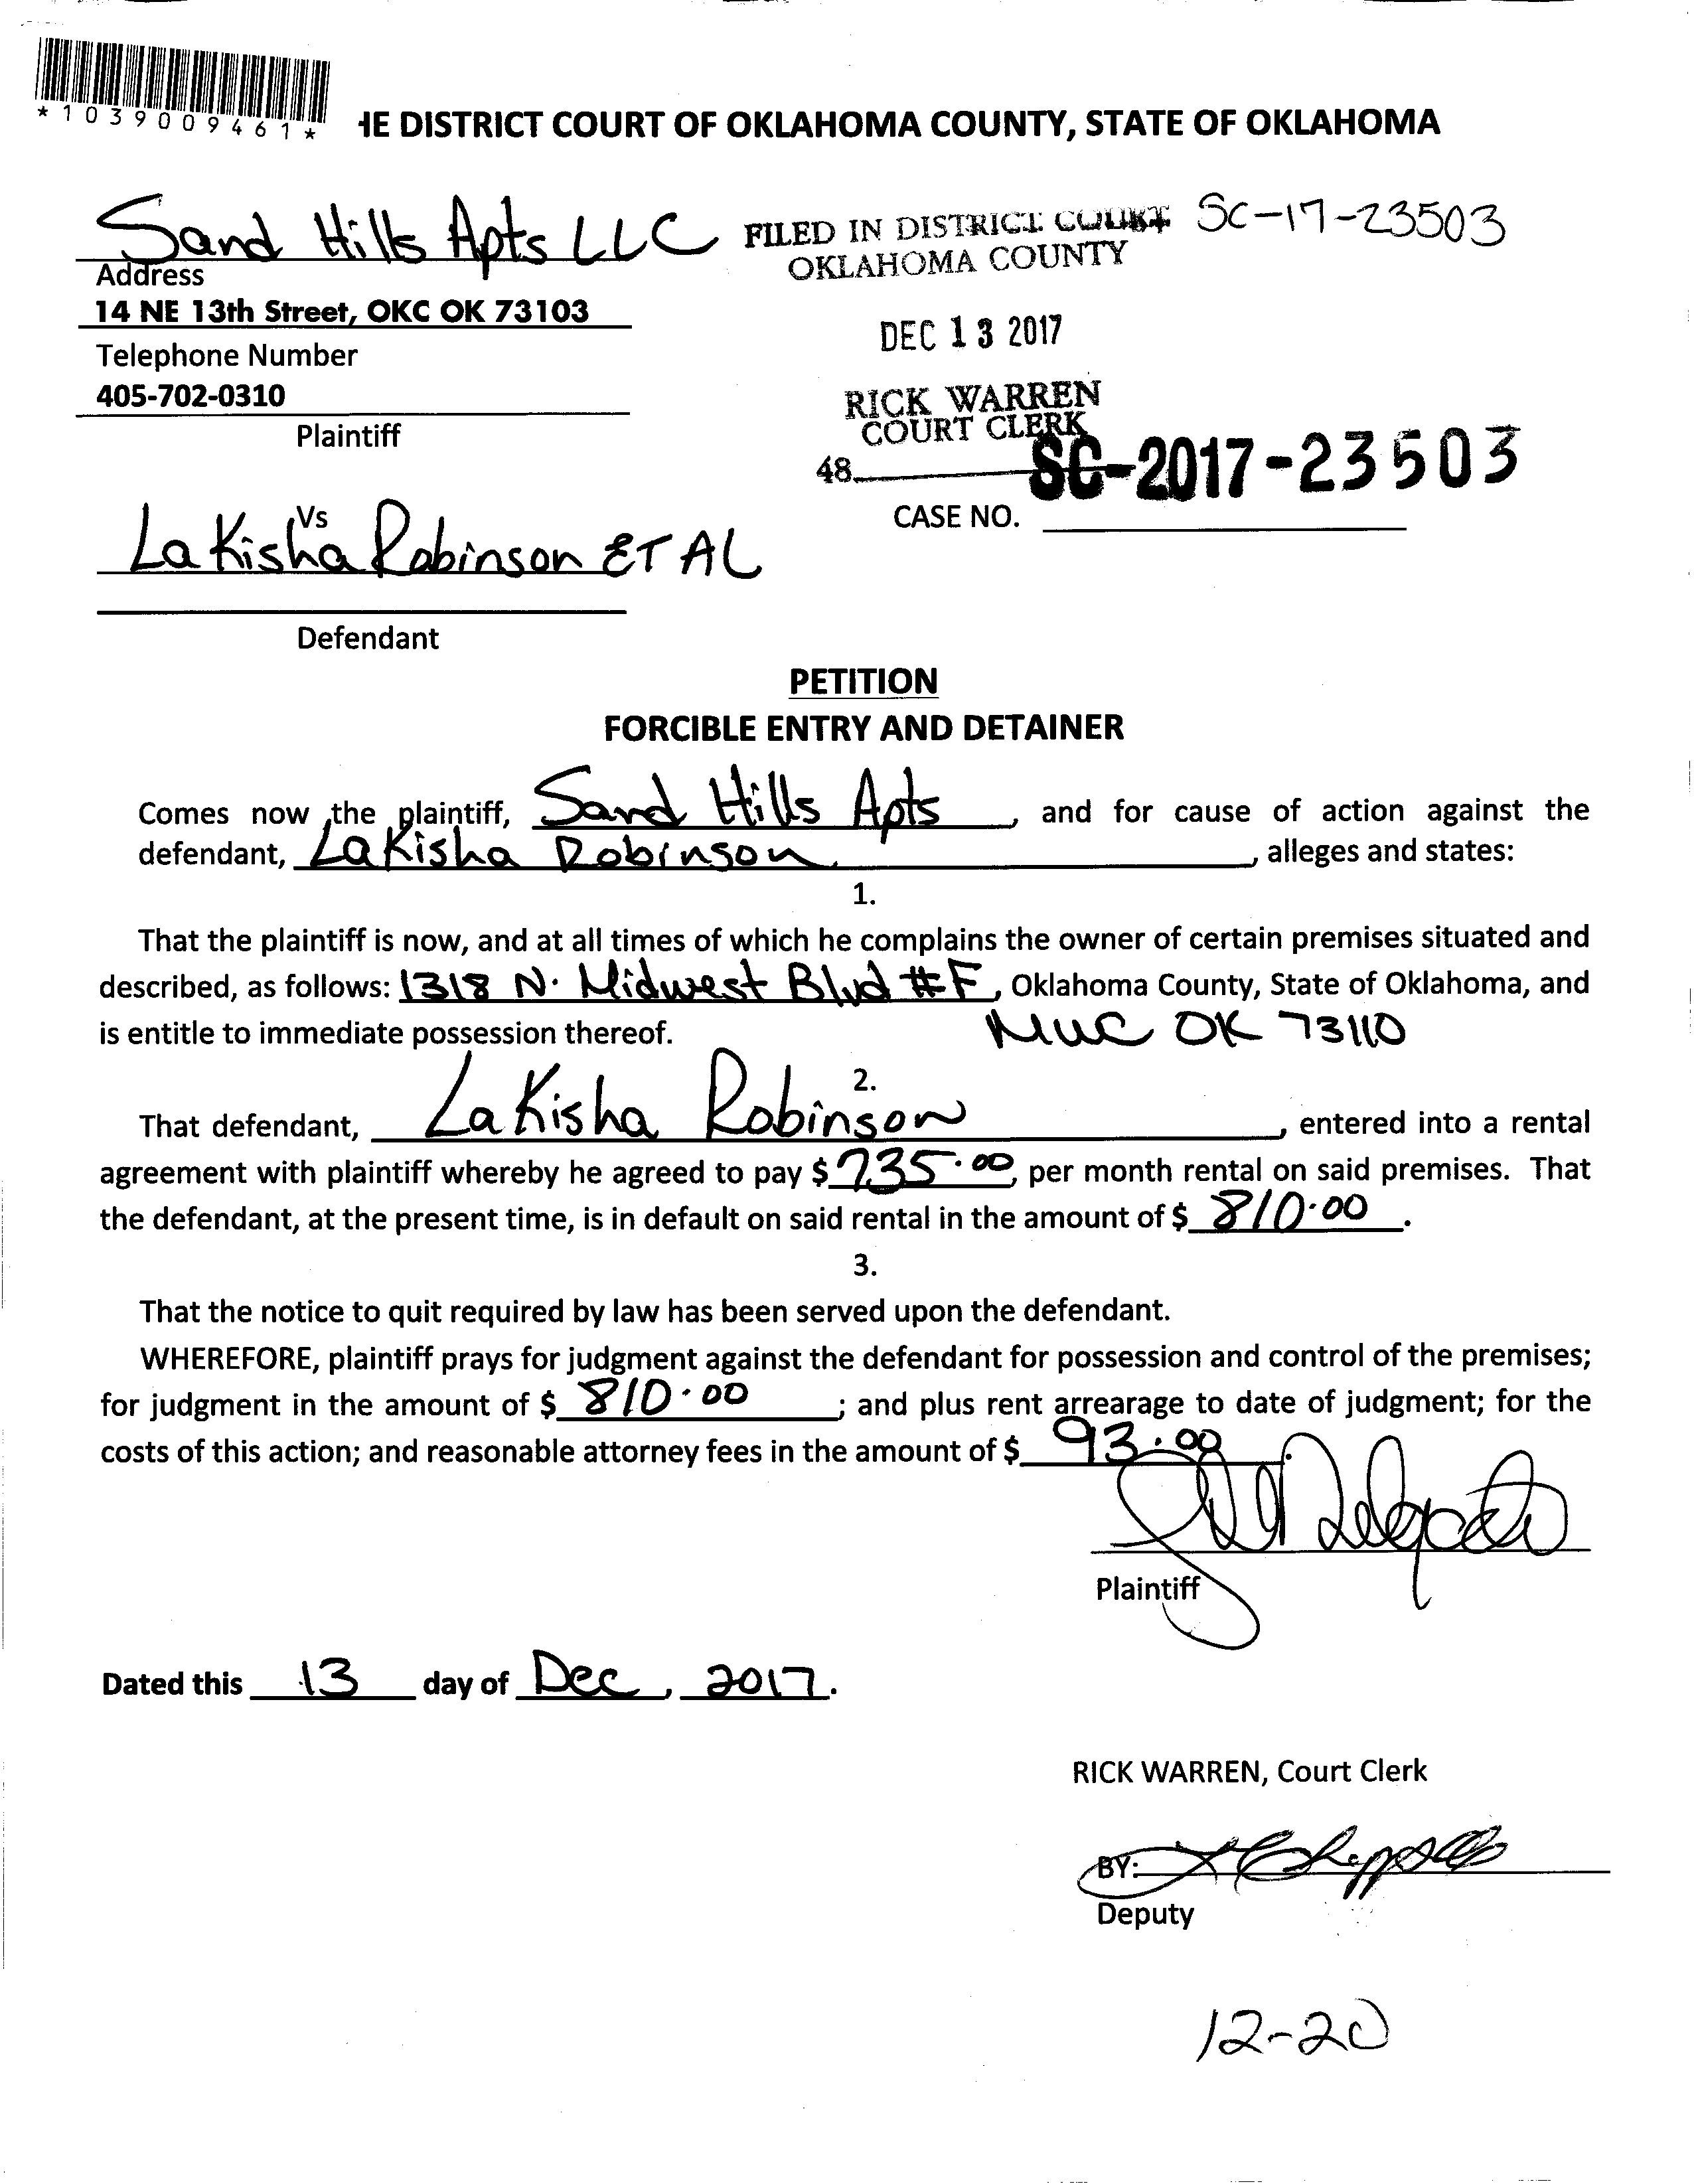 *1039009461*
HE DISTRICT COURT OF OKLAHOMA COUNTY, STATE OF OKLAHOMA
Sand Hills Apts LLC
FILED IN DISTRICT COURT SC-17-23503
OKLAHOMA COUNTY
Address
14 NE 13th Street, OKC OK 73103
DEC 13 2017
Telephone Number
405-702-0310
RICK WARREN
COURT CLERK
Plaintiff
48
SC-2017-23503
CASE NO.
Vs
LaKisha Robinson ET AL
Defendant
PETITION
FORCIBLE ENTRY AND DETAINER
Comes now the plaintiff, Sand Hills Apts, and for cause of action against the
defendant, LaKisha Robinson, alleges and states:
1.
That the plaintiff is now, and at all times of which he complains the owner of certain premises situated and
described, as follows: 1318 N. Midwest Blvd #F, Oklahoma County, State of Oklahoma, and
is entitle to immediate possession thereof. MWC OK 73110
2.
That defendant, LaKisha Robinson, entered into a rental
agreement with plaintiff whereby he agreed to pay $ 735.00, per month rental on said premises. That
the defendant, at the present time, is in default on said rental in the amount of $ 810.00.
3.
That the notice to quit required by law has been served upon the defendant.
WHEREFORE, plaintiff prays for judgment against the defendant for possession and control of the premises;
for judgment in the amount of $ 810.00; and plus rent arrearage to date of judgment; for the
costs of this action; and reasonable attorney fees in the amount of $ 93.00.
Plaintiff
Dated this 13 day of Dec, 2017.
RICK WARREN, Court Clerk
BY:
Deputy
12-20